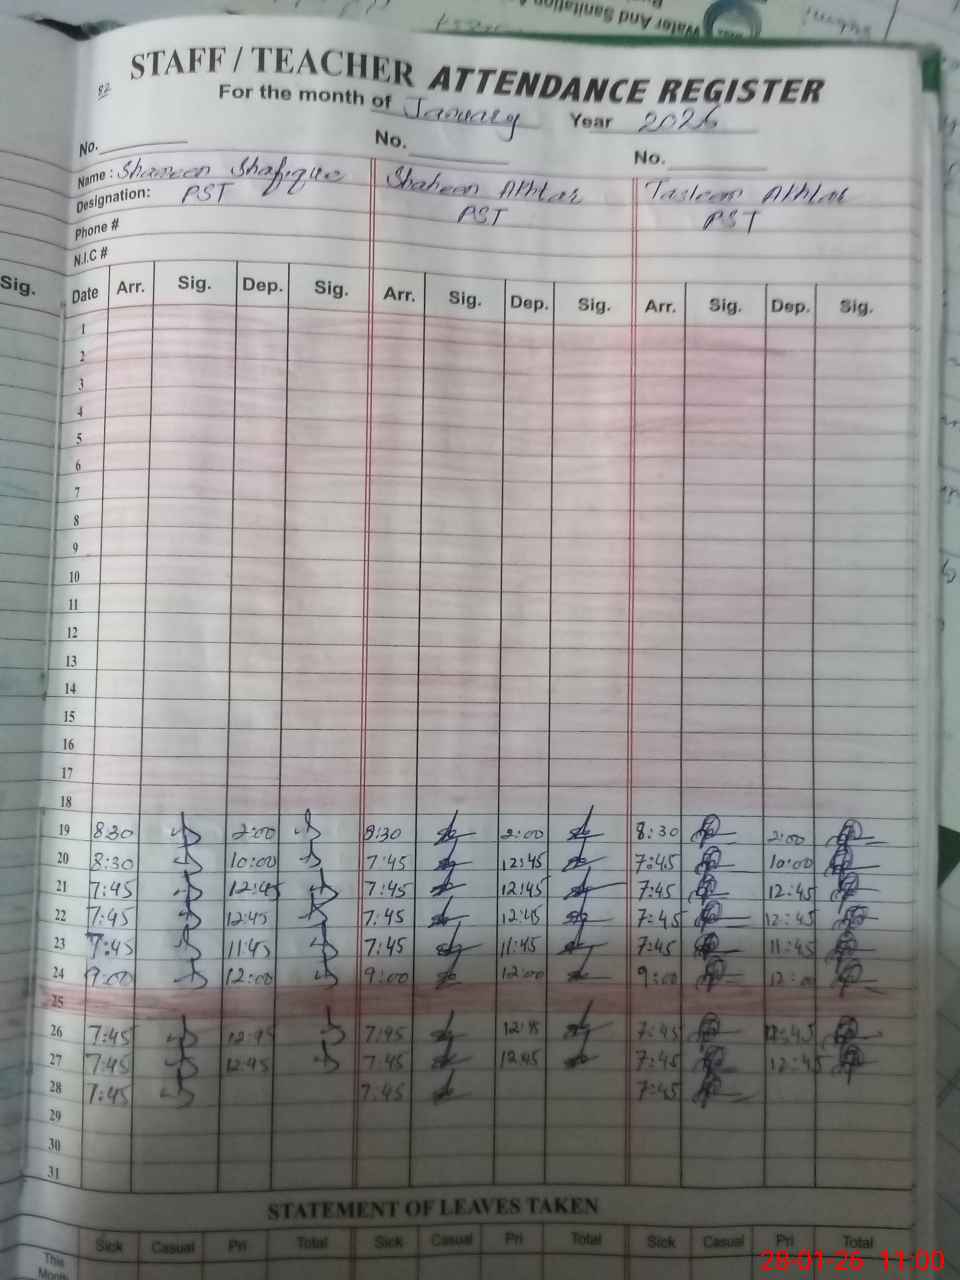 Water And Sanitation
STAFF / TEACHER ATTENDANCE REGISTER
82
For the month of January Year 2026
No. No. No.
Name : Shaheen Akhtar Tasleem Akhtar
Designation: PST PST PST
Phone #
N.I.C #
Sig. Date Arr. Sig. Dep. Sig. Arr. Sig. Dep. Sig. Arr. Sig. Dep. Sig.
1
2
3
4
5
6
7
8
9
10
11
12
13
14
15
16
17
18
19 8:30 2:00 8:30 2:00 8:30 2:00
20 8:30 10:00 7:45 12:45 7:45 10:00
21 7:45 12:45 7:45 12:45 7:45 12:45
22 7:45 12:45 7:45 12:45 7:45 12:45
23 7:45 11:45 7:45 11:45 7:45 11:45
24 9:00 12:00 9:00 12:00 9:00 12:00
25
26 7:45 12:45 7:45 12:45 7:45 12:45
27 7:45 12:45 7:45 12:45 7:45 12:45
28 7:45 7:45 7:45
29
30
31
STATEMENT OF LEAVES TAKEN
Sick Casual Pri Total Sick Casual Pri Total Sick Casual Pri Total
This
Month
28-01-26 11:00